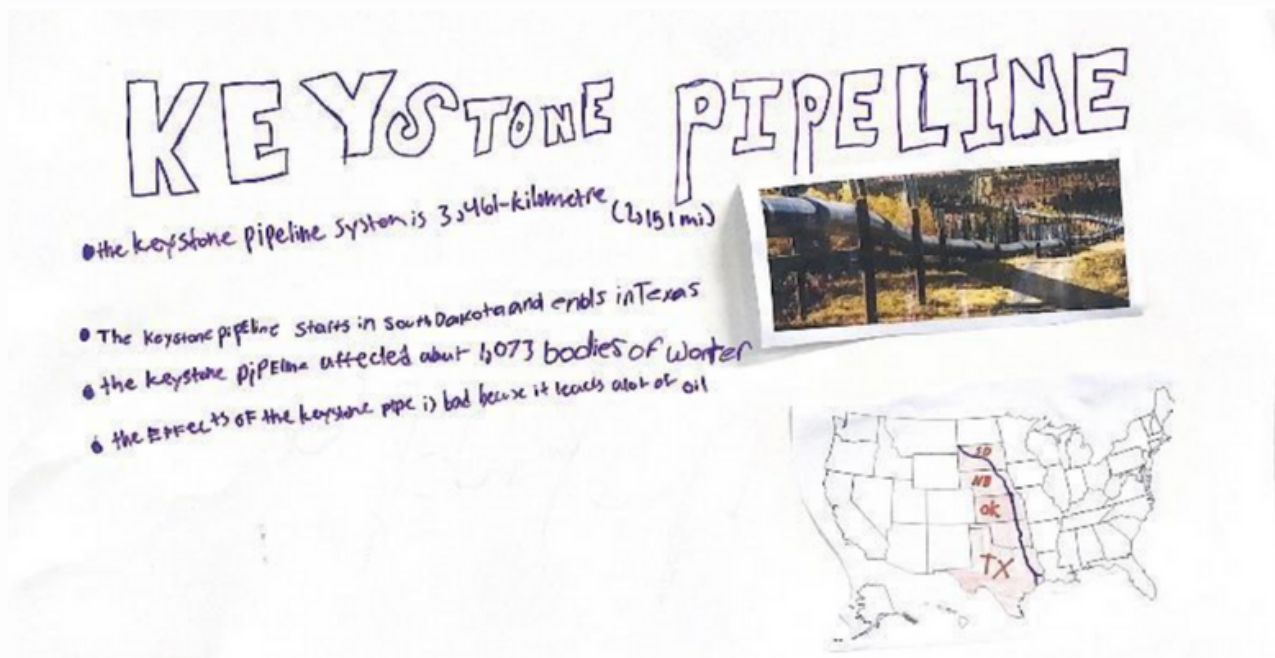 KEYSTONE PIPELINE
• the keystone pipeline system is 3,461-kilometre (2,151 mi)
• The keystone pipeline starts in South Dakota and ends in Texas
• the keystone pipEline affected abut 1,073 bodies of Worter
• the EffEcts oF the keystone pipe is bad becuse it leacks alot of oil
SD
NB
OK
TX